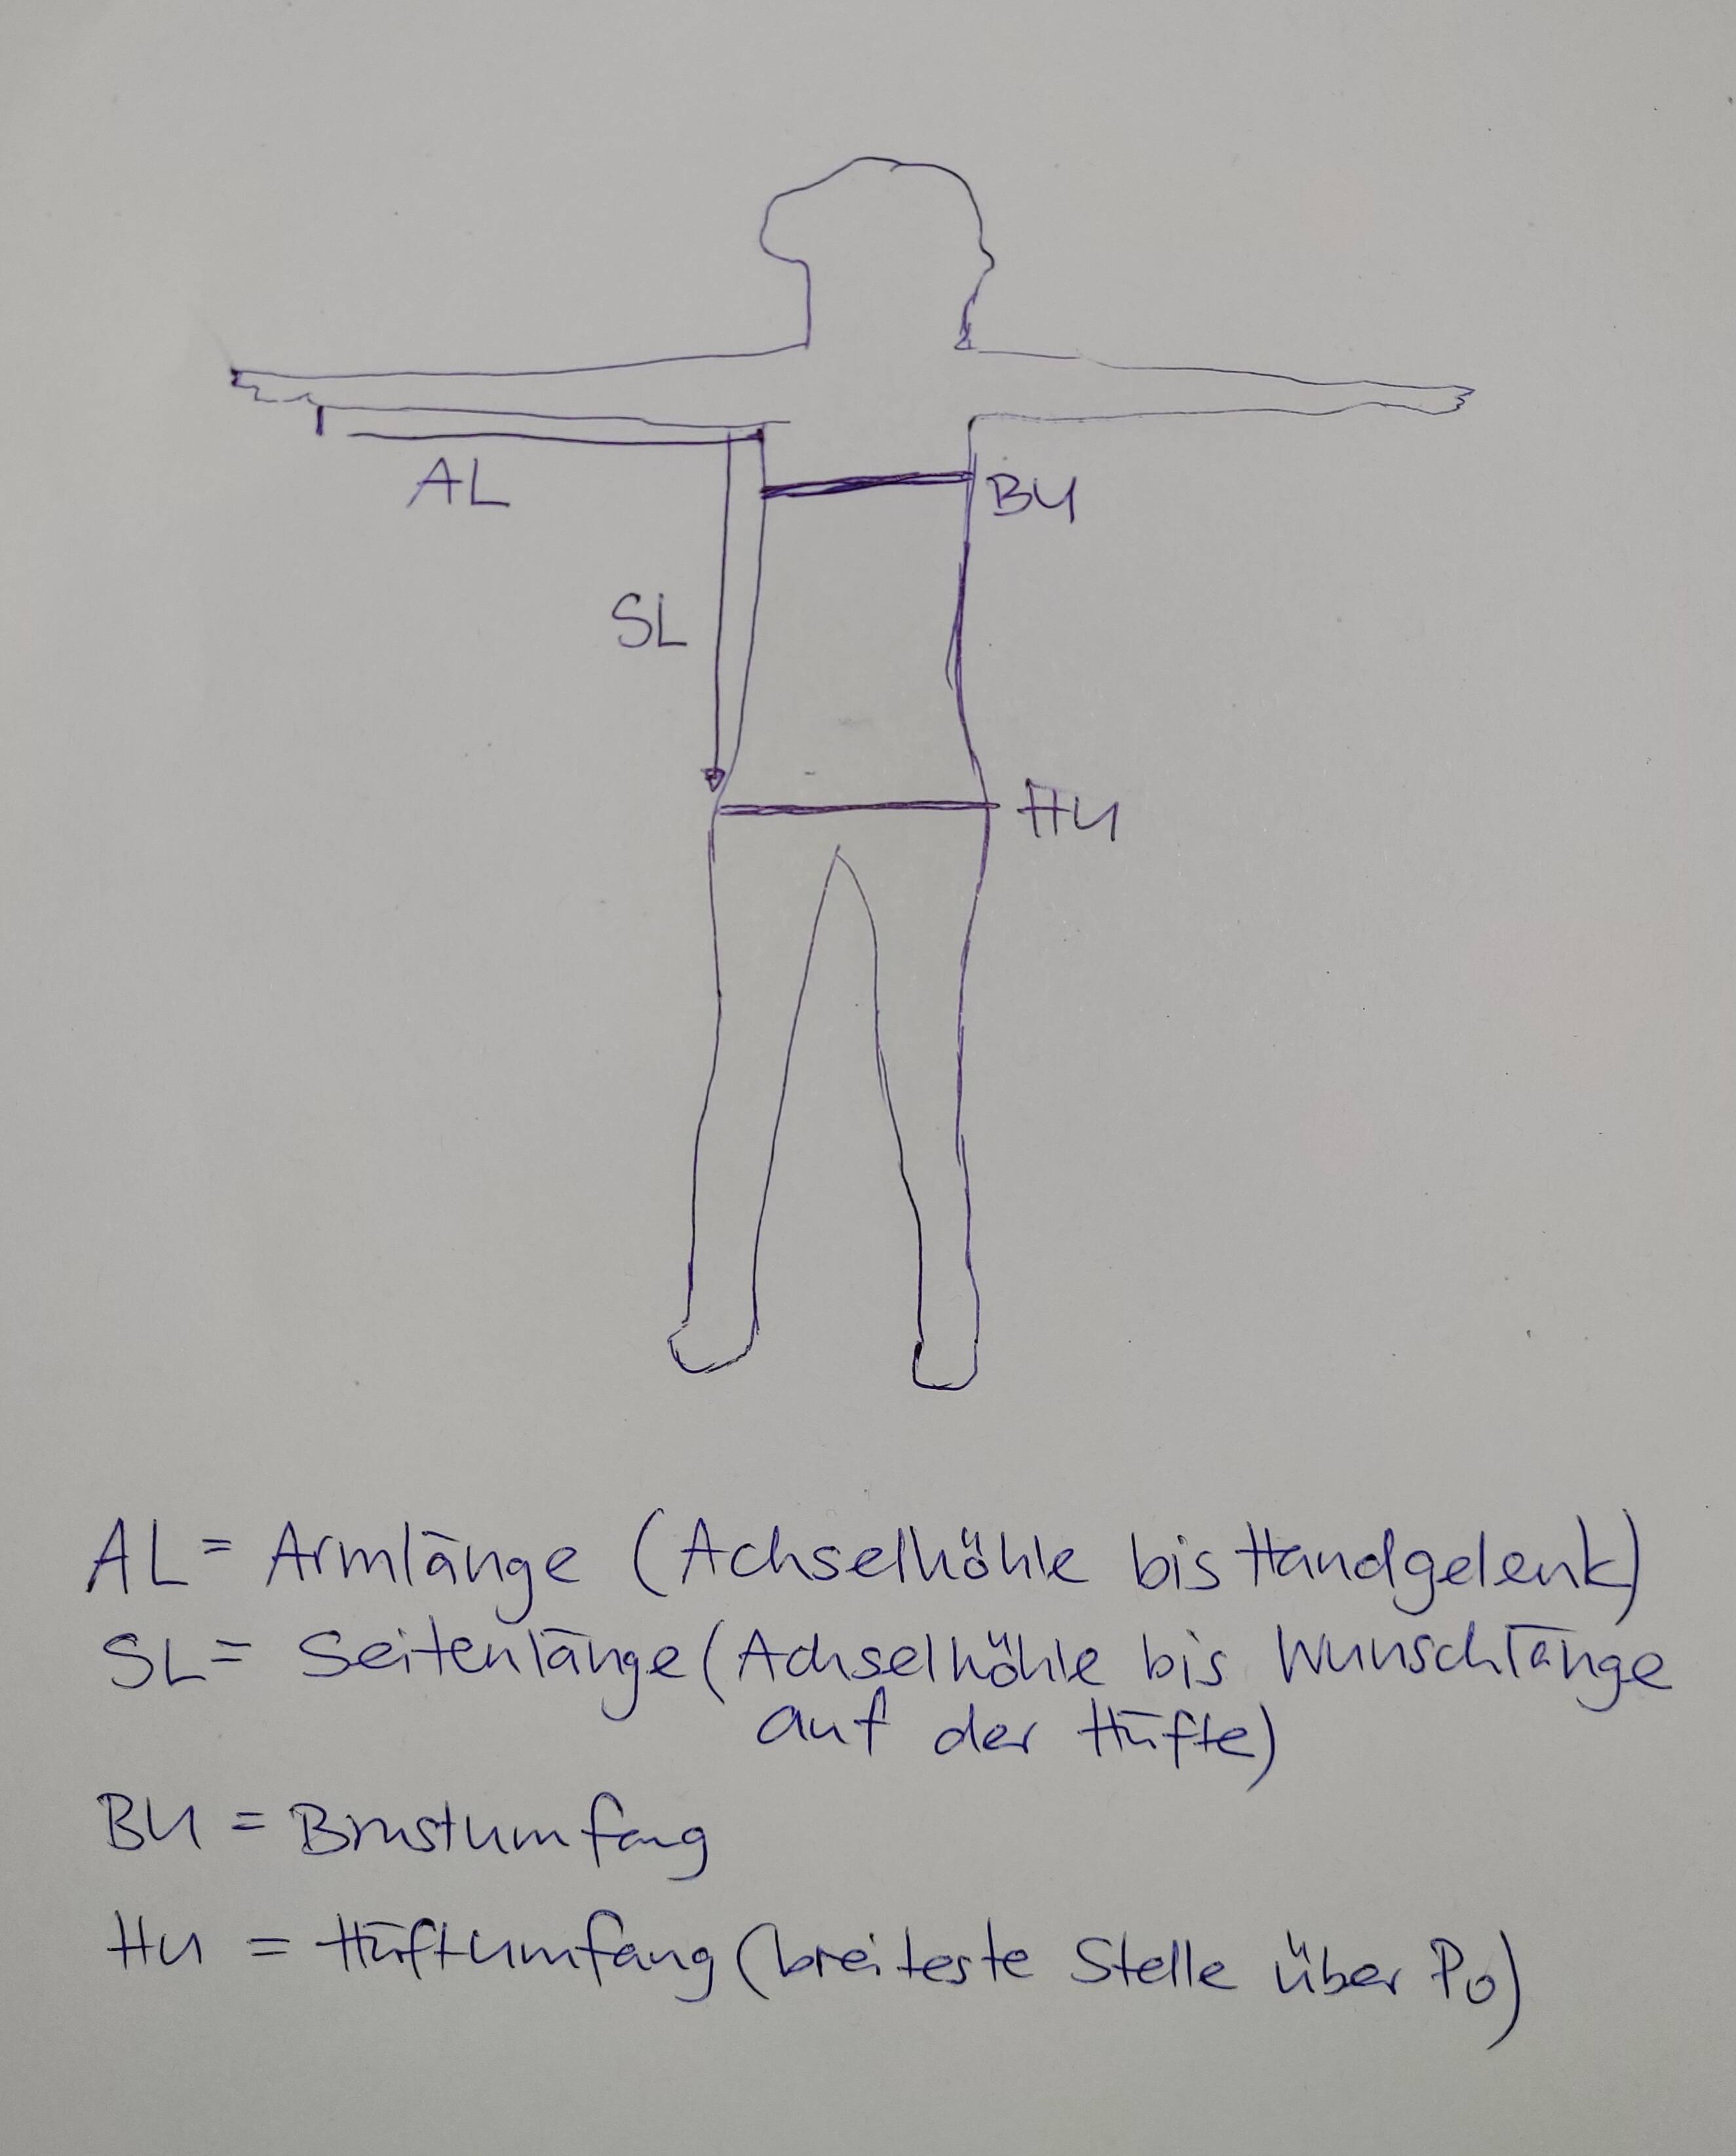 AL
BU
SL
HU
AL = Armlänge (Achselhöhle bis Handgelenk)
SL = Seitenlänge (Achselhöhle bis Wunschlänge
auf der Hüfte)
BU = Brustumfang
HU = Hüftumfang (breiteste Stelle über Po)